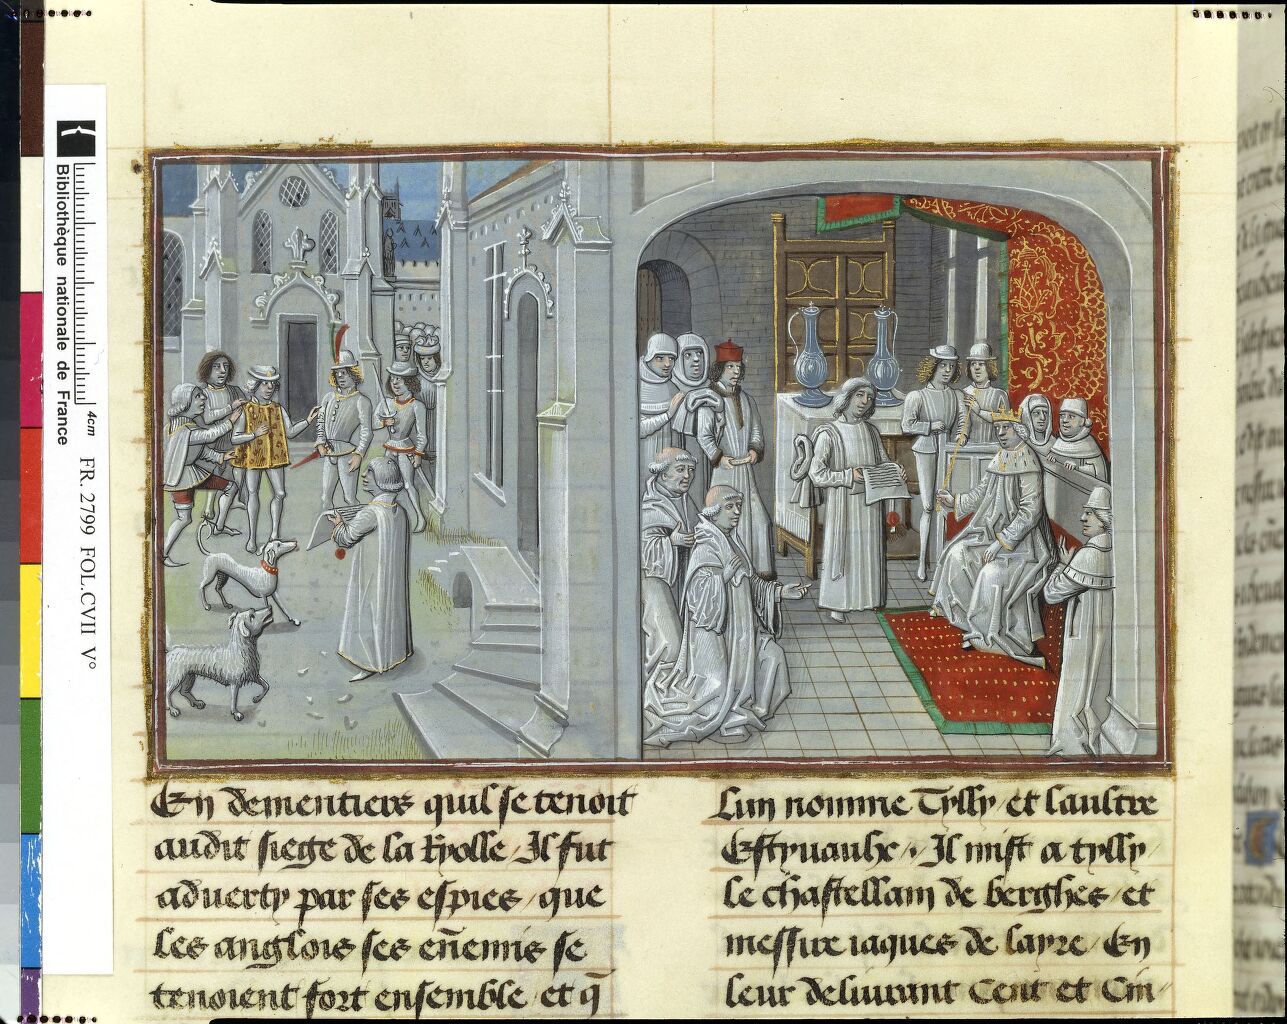 Bibliothèque nationale de France
4cm
FR. 2799 FOL.CVII V°
En dementiers quil se tenoit
audit siege de la Ryolle / Il fut
aduerty par ses espies / que
les anglois ses en̄emis se
tenoient fort ensemble / et q̄
Lun nomme Tylly / et laultre
Il mist a tylly /
le chastellain de berghes / et
messire iaques de / En
leur deliurant Cent et Cin-